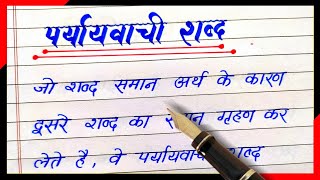 पर्यायवाची शब्द
जो शब्द समान अर्थ के कारण
दूसरे शब्द का स्थान गृहण कर
लेते है, वे पर्यायवाची शब्द